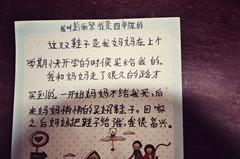 我叫彭丽棻 我是四年级的
这双鞋子是我妈妈在上个
学期快开学的时侯买给我的。
我和妈妈走了很久的路才
买到的。一开始妈妈不给我买。后
来妈妈悄悄的买了鞋子。回家
之后妈妈把鞋子给我。我很高兴。